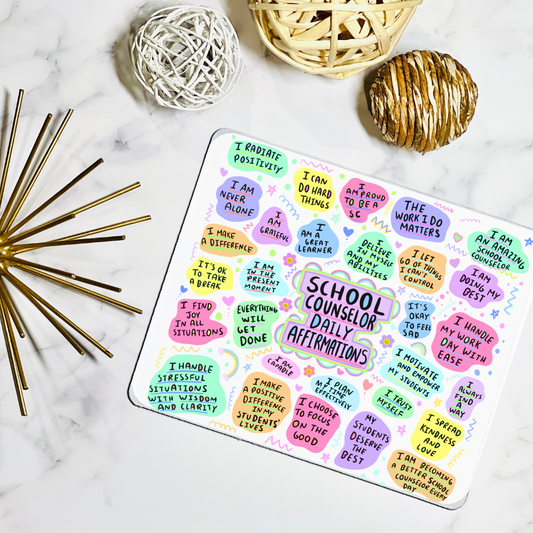 I RADIATE
POSITIVITY
I CAN
DO HARD
THINGS
I AM PROUD
TO BE A
SC
THE
WORK I DO
MATTERS
I AM
AN AMAZING
SCHOOL
COUNSELOR
I AM
NEVER
ALONE
I AM
GRATEFUL
I AM A
GREAT
LEARNER
I
BELIEVE
IN MYSELF
AND MY
ABILITIES
I LET
GO OF THINGS
I CAN'T
CONTROL
I AM
DOING MY
BEST
I MAKE
A DIFFERENCE
IT'S OK
TO TAKE
A BREAK
I AM
IN THE
PRESENT
MOMENT
SCHOOL
COUNSELOR
DAILY
AFFIRMATIONS
IT'S
OKAY
TO FEEL
SAD
I HANDLE
MY WORK
DAY WITH
EASE
I FIND
JOY
IN ALL
SITUATIONS
EVERYTHING
WILL
GET
DONE
I AM
CAPABLE
I MOTIVATE
AND EMPOWER
MY STUDENTS
I
ALWAYS
FIND A
WAY
I HANDLE
STRESSFUL
SITUATIONS
WITH WISDOM
AND CLARITY
I MAKE
A POSITIVE
DIFFERENCE
IN MY
STUDENTS'
LIVES
I PLAN
MY TIME
EFFECTIVELY
I TRUST
MYSELF
I CHOOSE
TO FOCUS
ON THE
GOOD
MY
STUDENTS
DESERVE
THE
BEST
I SPREAD
KINDNESS
AND
LOVE
I AM BECOMING
A BETTER SCHOOL
COUNSELOR EVERY
DAY